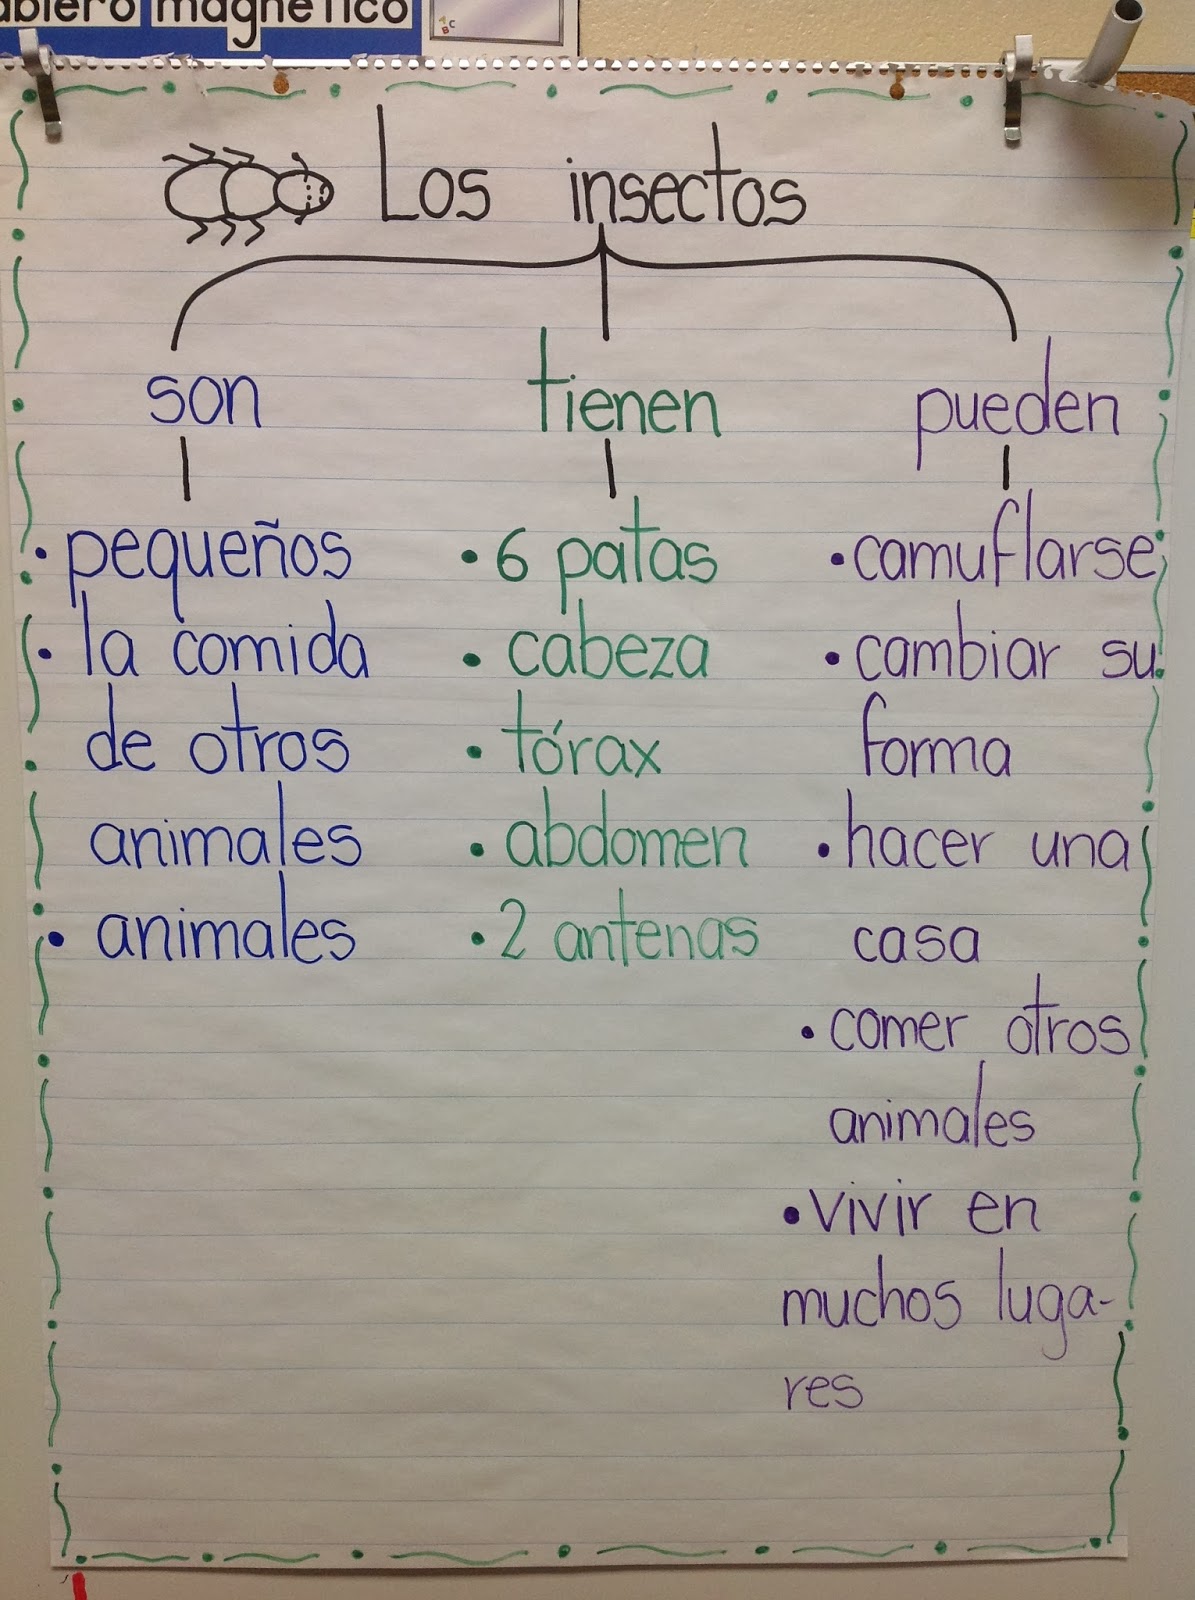 magnético
Los insectos
son
• pequeños
• la comida
de otros
animales
• animales
tienen
• 6 patas
• cabeza
• tórax
• abdomen
• 2 antenas
pueden
• camuflarse
• cambiar su
forma
• hacer una
casa
• comer otros
animales
• vivir en
muchos luga-
res